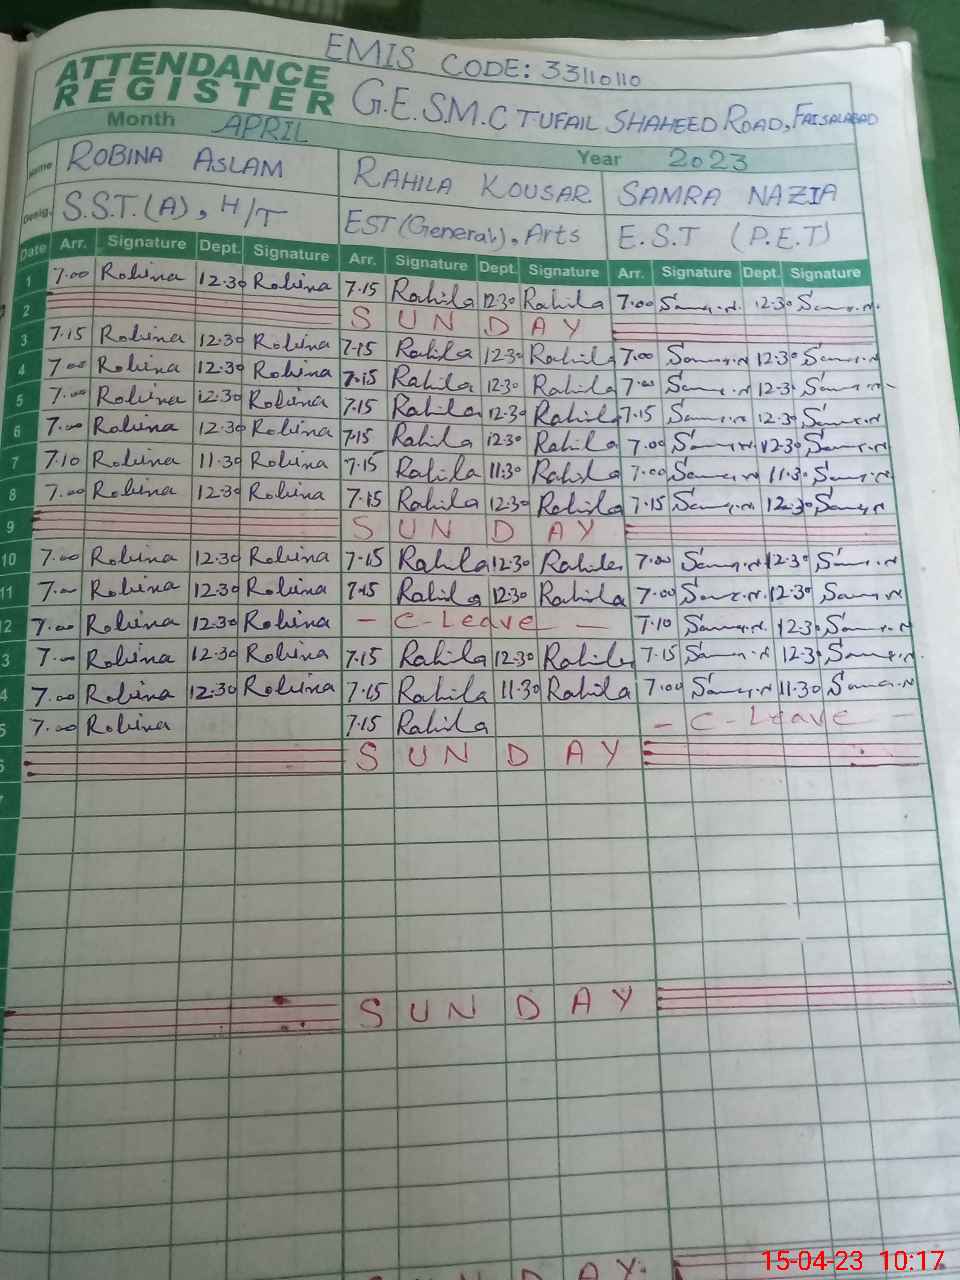 EMIS CODE: 33110110
ATTENDANCE REGISTER G.E.S.M.C TUFAIL SHAHEED ROAD, FAISALABAD
Month APRIL Year 2023
Name ROBINA ASLAM RAHILA KOUSAR. SAMRA NAZIA
Desig. S.S.T.(A), H/T EST (General), Arts E.S.T (P.E.T)
Date Arr. Signature Dept. Signature Arr. Signature Dept. Signature Arr. Signature Dept. Signature
1 7.00 Robina 12.30 Robina 7.15 Rahila 12.30 Rahila 7.00 Samra.N 12.30 Samra.N
2 SUNDAY
3 7.15 Robina 12.30 Robina 7.15 Rahila 12.30 Rahila 7.00 Samra.N 12.30 Samra.N
4 7.00 Robina 12.30 Robina 7.15 Rahila 12.30 Rahila 7.00 Samra.N 12.30 Samra.N
5 7.00 Robina 12.30 Robina 7.15 Rahila 12.30 Rahila 7.15 Samra.N 12.30 Samra.N
6 7.00 Robina 12.30 Robina 7.15 Rahila 12.30 Rahila 7.00 Samra.N 12.30 Samra.N
7 7.10 Robina 11.30 Robina 7.15 Rahila 11.30 Rahila 7.00 Samra.N 11.30 Samra.N
8 7.00 Robina 12.30 Robina 7.15 Rahila 12.30 Rahila 7.15 Samra.N 12.30 Samra.N
9 SUNDAY
10 7.00 Robina 12.30 Robina 7.15 Rahila 12.30 Rahila 7.00 Samra.N 12.30 Samra.N
11 7.00 Robina 12.30 Robina 7.15 Rahila 12.30 Rahila 7.00 Samra.N. 12.30 Samra.N
2 7.00 Robina 12.30 Robina - C-Leave - 7.10 Samra.N. 12.30 Samra.N
3 7.00 Robina 12.30 Robina 7.15 Rahila 12.30 Rahila 7.15 Samra.N 12.30 Samra.N.
4 7.00 Robina 12.30 Robina 7.15 Rahila 11.30 Rahila 7.00 Samra.N 11.30 Samra.N
5 7.00 Robina 7.15 Rahila - C-Leave -
6 SUNDAY
SUNDAY
SUNDAY
15-04-23 10:17